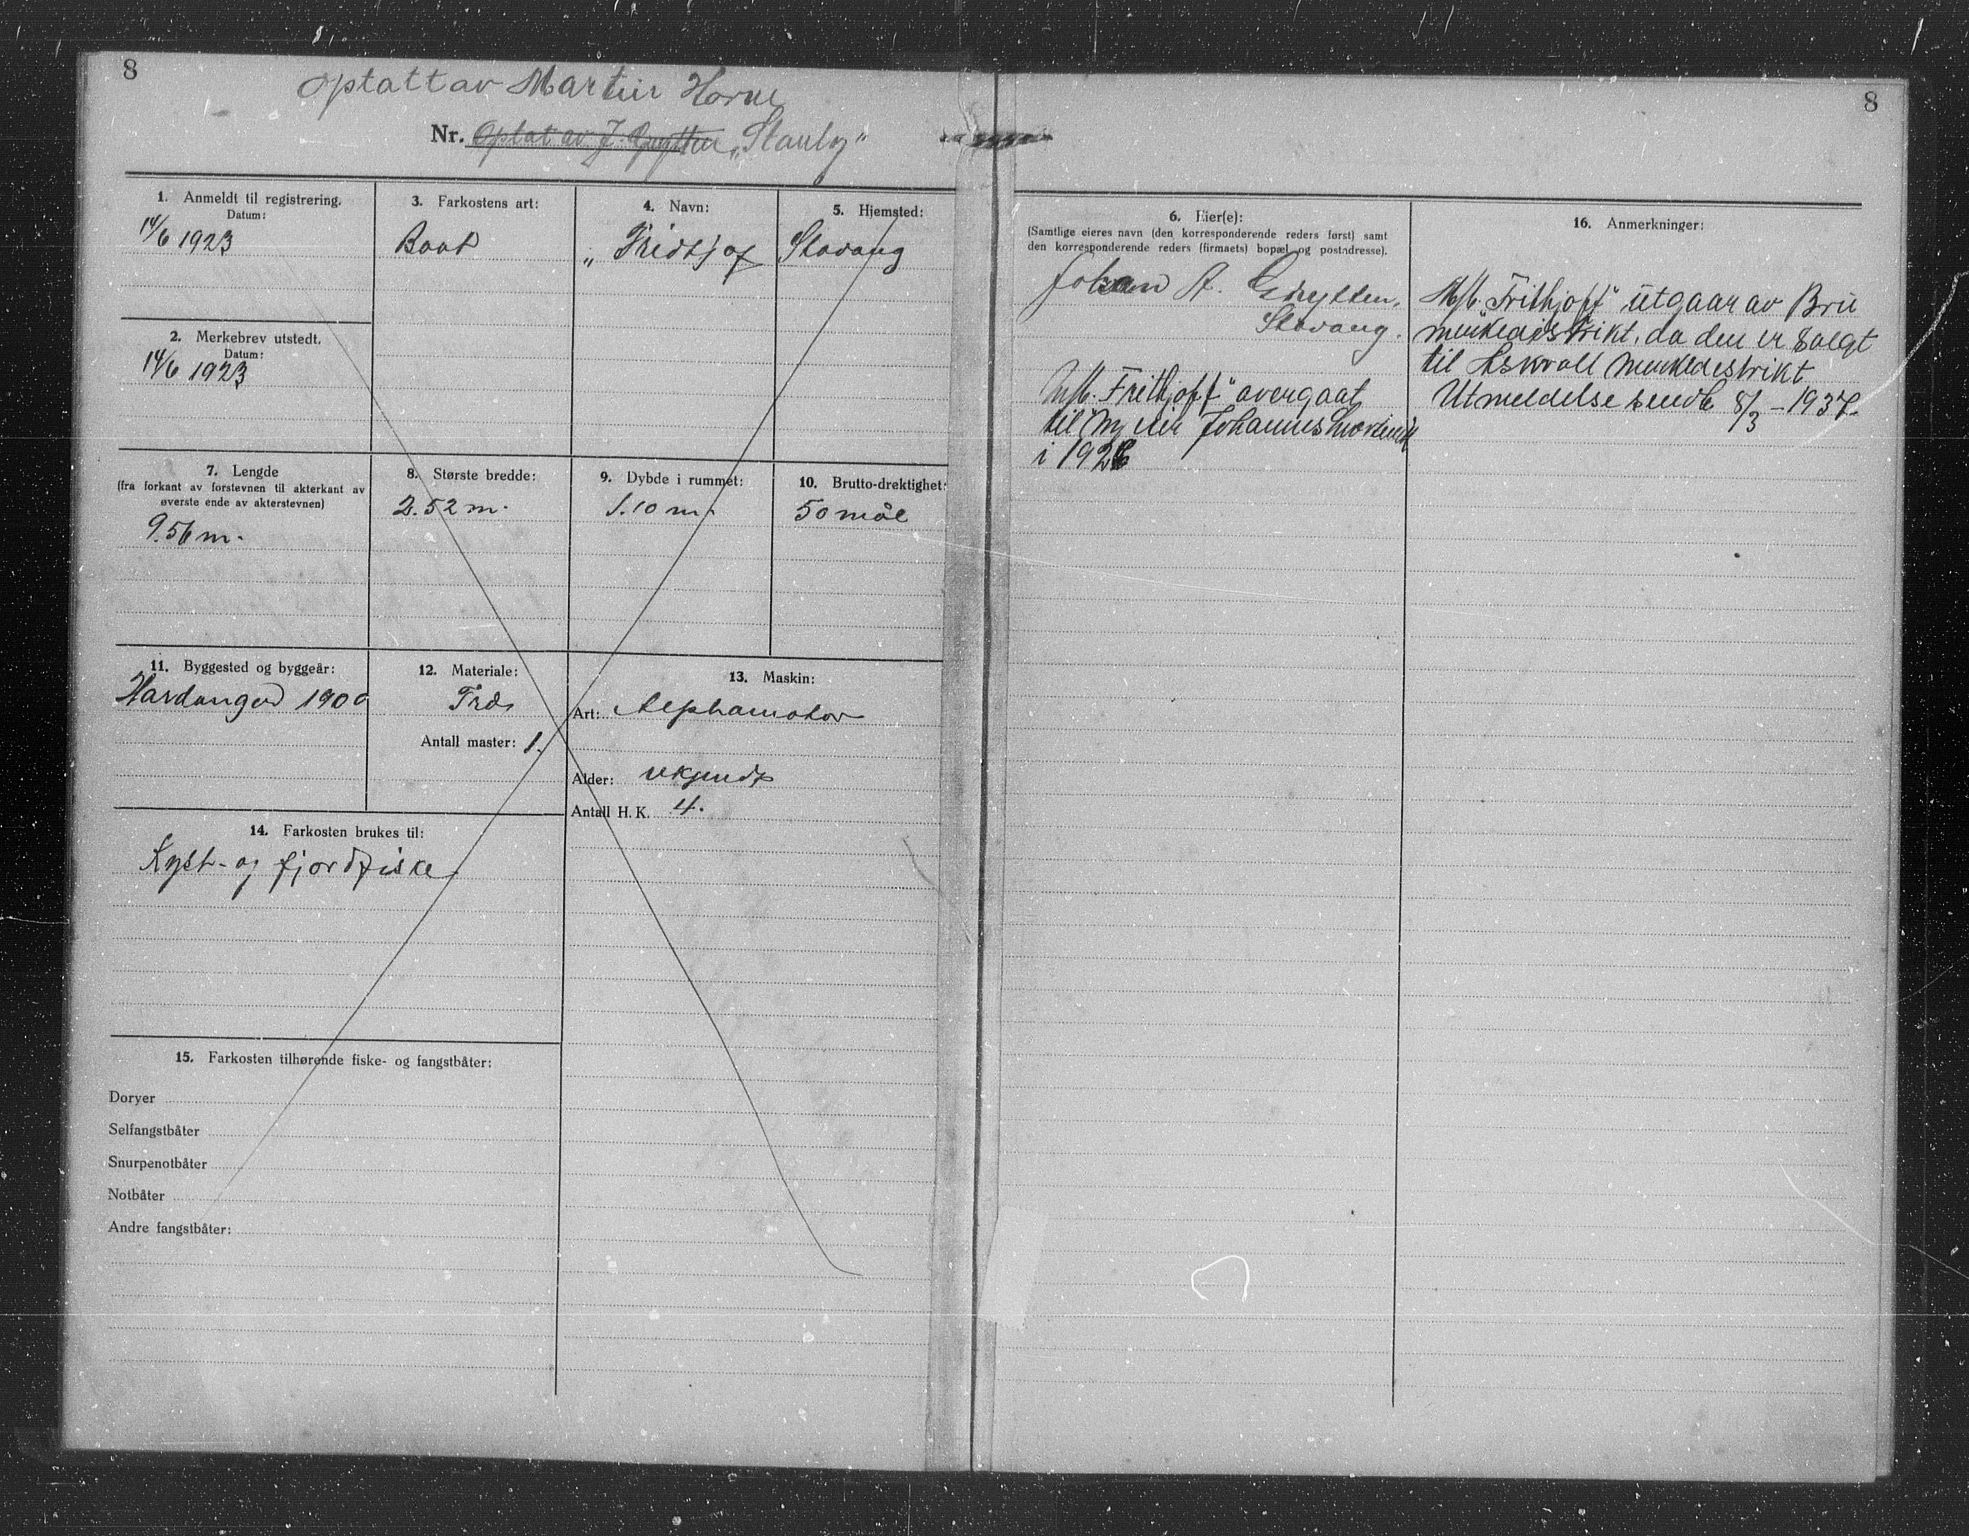 8
Optatt av Martin Horne
Nr. Optat av J. Gryttin „Stanley"
1. Anmeldt til registrering.
Datum:
14/6 1923
2. Merkebrev utstedt.
Datum:
14/6 1923
3. Farkostens art:
Baat
4. Navn:
„Fridtjof
5. Hjemsted:
Stavang
7. Lengde
(fra forkant av forstevnen til akterkant av
øverste ende av akterstevnen)
9.56 m.
8. Største bredde:
2.52 m.
9. Dybde i rummet:
1.10 m.
10. Brutto-drektighet:
50 mål
11. Byggested og byggeår:
Hardanger 1900
12. Materiale:
Træ
Antall master: 1.
13. Maskin:
Art: Alphamotor
Alder: ukjendt
Antall H. K. 4.
14. Farkosten brukes til:
Kyst- og fjordfiske
15. Farkosten tilhørende fiske- og fangstbåter:
Doryer
Selfangstbåter
Snurpenotbåter
Notbåter
Andre fangstbåter:
8
6. Eier(e):
(Samtlige eieres navn (den korresponderende reders først) samt
den korresponderende reders (firmaets) bopæl og postadresse).
Johan A. Grytten,
Stavang.
M/k. Frithjoff" overgaat
til ny eier Johannes
i 1926
16. Anmerkninger:
M/k. Frithjoff" utgaar av Bru
merkedistrikt, da den er solgt
til Askvoll merkedistrikt
Utmeldelse sendt 8/3 - 1937.